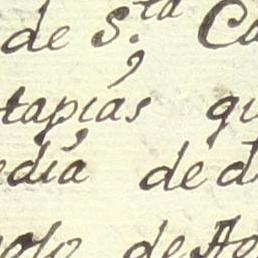 de S.ta Ca
tapias qu
edia de d
olo de Ag